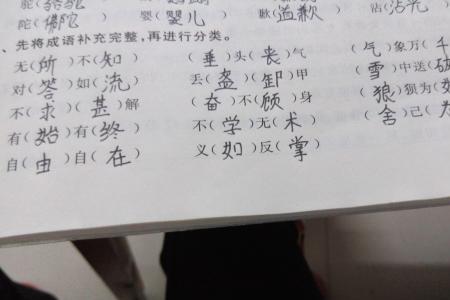 陀(佛陀) 婴(婴儿) 歉(道歉) 沾(沾光
、先将成语补充完整,再进行分类。
无(所)不(知) (垂)头(丧)气 (气)象万(千
对(答)如(流) 丢(盔)(卸)甲 (雪)中送(
不(求)(甚)解 (奋)不(顾)身 (狼)狈为(
有(始)有(终) 不(学)无(术) (舍)己(为
自(由)自(在) 义(如)反(掌)